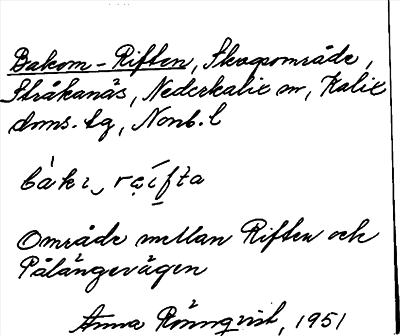 Bakom-Riften, Skogsområde,
Stråkanäs, Nederkalix sn, Kalix
doms. tg, Norrb. l
Område mellan Riften och
Pålängevägen
Anna Rönnqvist, 1951